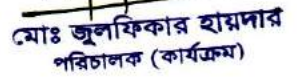 মোঃ জুলফিকার হায়দার
পরিচালক (কার্যক্রম)